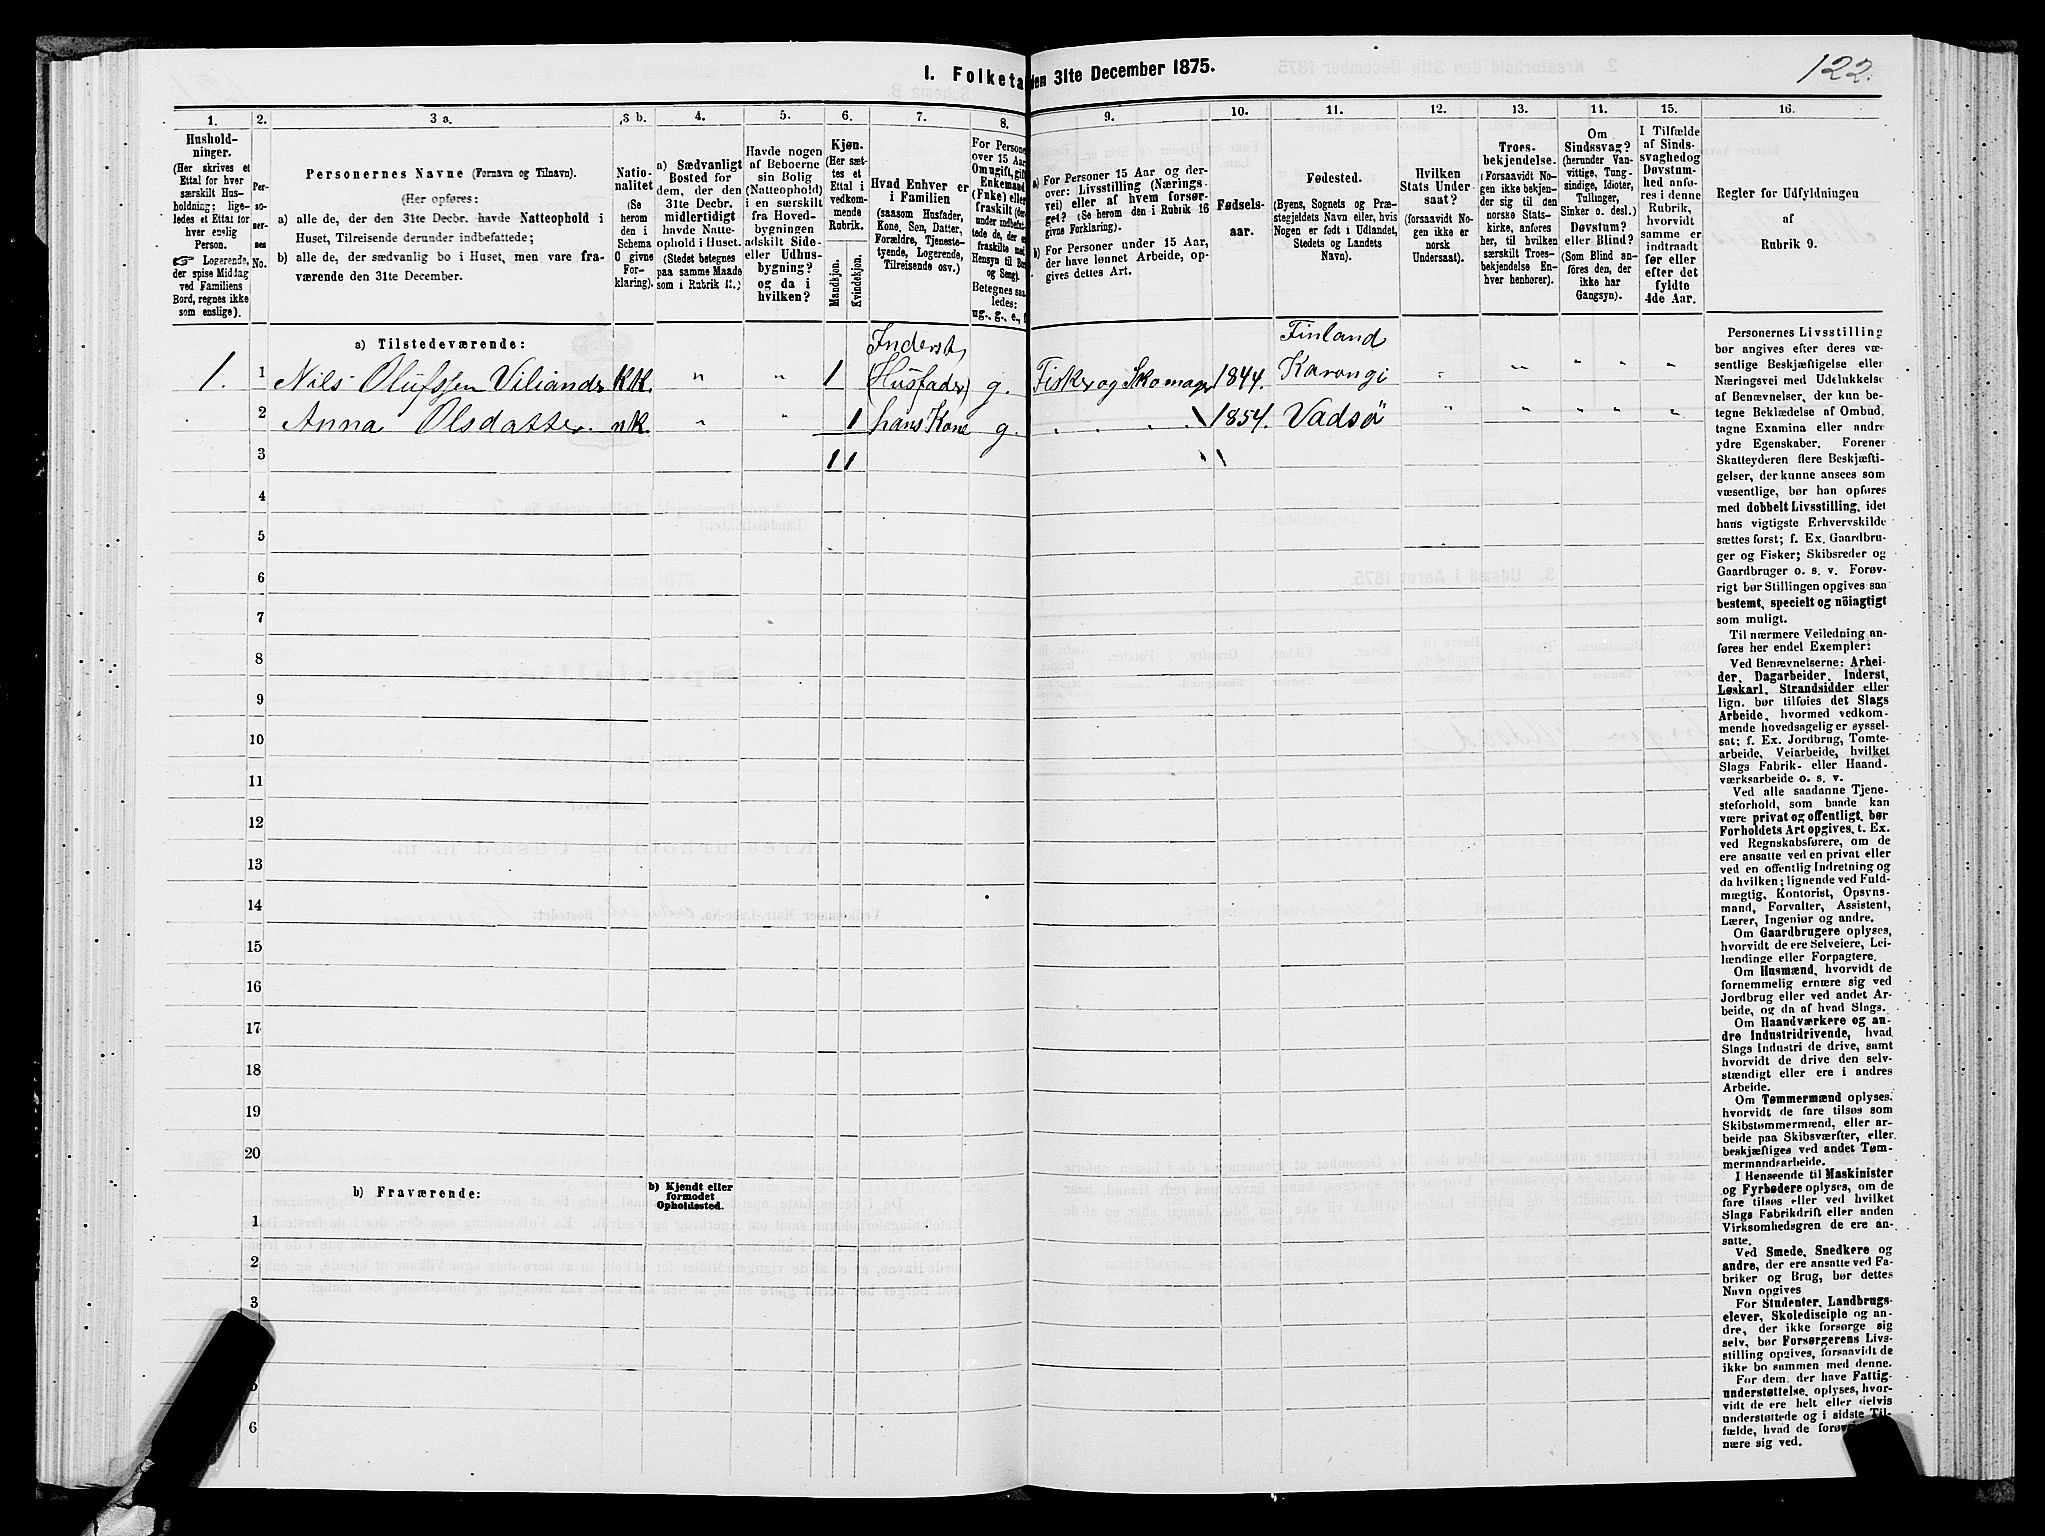 I. Folketa
den 31te December 1875.
122.
1.
2.
3 a.
3 b.
4.
5.
6.
7.
8.
9.
10.
11.
12.
13.
11.
15.
16.
Hushold-
ninger.
(Her skrives et
Ettal for hver
særskilt Hus-
holdning; lige-
ledes et Ettal for
hver enslig
Person.
☞ Logerende,
der spise Middag
ved Familiens
Bord, regnes ikke
som enslige).
Per-
so-
ner-
nes
No.
Personernes Navne (Fornavn og Tilnavn).
(Her opføres:
a) alle de, der den 31te Decbr. havde Natteophold i
Huset, Tilreisende derunder indbefattede;
b) alle de, der sædvanlig bo i Huset, men vare fra-
værende den 31te December.
Natio-
nalitet
(Se
herom
den i
Schema
O givne
For-
klaring).
a) Sædvanligt
Bosted for
dem, der den
31te Decbr.
midlertidigt
havde Natte-
ophold i Huset.
(Stedet betegnes
paa samme Maade
som i Rubrik 11.)
Havde nogen
af Beboerne
sin Bolig
(Natteophold)
i en særskilt
fra Hoved-
bygningen
adskilt Side-
eller Udhus-
bygning?
og da i
hvilken?
Kjøn.
(Her sæt-
tes et
Ettal i
vedkom-
mende
Rubrik.
Mandkjøn.
Kvindekjøn.
Hvad Enhver er
i Familien
(saasom Husfader,
Kone, Søn, Datter,
Forældre, Tjeneste-
tyende, Logerende,
Tilreisende osv.)
For Persone
over 15 Aar
Om ugift, gift
Enkemand
(Fnke) eller
fraskilt (der
under indbefat
tede de, der er
fraskilte med
Hensyn til Bor
og Seng).
Betegnes saa
ledes:
ug., g., e., f
a) For Personer 15 Aar og der-
over: Livsstilling (Nærings-
vei) eller af hvem forsør-
get? (Se herom den i Rubrik 16
givne Forklaring).
b) For Personer under 15 Aar,
der have lønnet Arbeide, op-
gives dettes Art.
Fødsels-
aar.
Fødested.
(Byens, Sognets og Præ-
stegjeldets Navn eller, hvis
Nogen er født i Udlandet,
Stedets og Landets
Navn).
Hvilken
Stats Under-
saat?
(forsaavidt No-
gen ikke er
norsk
Undersaat).
Troes-
bekjendelse.
(Forsaavidt No-
gen ikke bekjen-
der sig til den
norske Stats-
kirke, anføres
her, til hvilken
særskilt Troes-
bekjendelse En-
hver henhører).
Om
Sindssvag?
(herunder Van-
vittige, Tung-
sindige, Idioter,
Tullinger,
Sinker o. desl.)
Døvstum?
eller Blind?
(Som Blind an-
føres den, der
ikke har
Gangsyn).
I Tilfælde
af Sinds-
svaghed og
Døvstum-
hed anfø-
res i denne
Rubrik,
hvorvidt
samme er
indtraadt
før eller
efter det
fyldte
4de Aar.
Regler for Udfyldningen
af
Rubrik 9.
a) Tilstedeværende:
Inderst,
Finland
1. 1 Nils Olufssen Viliander KK. " " 1 (Husfader) g. Fisker og Skomager 1844. Karungi
2 Anna Olsdatter. nK. " " 1 hans Kone g. 1854. Vadsö
3 1 1
4
5
6
7
8
9
10
11
12
13
14
15
16
17
18
19
20
b) Fraværende:
b) Kjendt eller
formodet
Opholdssted.
1
2
3
6
Personernes Livsstilling
bør angives efter deres væ-
sentlige Beskjæftigelse eller
Næringsvei med Udelukkelse
af Benævnelser, der kun be-
tegne Beklædelse af Ombud,
tagne Examina eller andre
ydre Egenskaber. Forener
Skatteyderen flere Beskjæfti-
gelser, der kunne ansees som
væsentlige, bør han opføres
med dobbelt Livsstilling, idet
hans vigtigste Erhvervskilde
sættes først; f. Ex. Gaardbru-
ger og Fisker; Skibsreder og
Gaardbruger o. s. v. Forøv-
rigt bør Stillingen opgives saa
bestemt, specielt og nöiagtigt
som muligt.
Til nærmere Veiledning an-
føres her endel Exempler:
Ved Benævnelserne: Arbei-
der, Dagarbeider, Inderst,
Løskarl, Strandsidder eller
lign. bør tilføies det Slags
Arbeide, hvormed vedkom-
mende hovedsagelig er syssel-
sat; f. Ex. Jordbrug, Tomte-
arbeide, Veiarbeide, hvilket
Slags Fabrik- eller Haand-
værksarbeide o. s. v.
Ved alle saadanne Tjene-
steforhold, som baade kan
være privat og offentligt, bør
Forholdets Art opgives, t. Ex.
ved Regnskabsførere, om de
ere ansatte ved en privat eller
ved en offentlig Indretning og
da hvilken; lignende ved Fuld-
mægtig, Kontorist, Opsyns-
mand, Forvalter, Assistent,
Lærer, Ingeniør og andre.
Om Gaardbrugere oplyses,
hvorvidt de ere Selveiere, Lei-
lændinge eller Forpagtere.
Om Husmænd, hvorvidt de
fornemmelig ernære sig ved
Jordbrug eller ved andet Ar-
beide, og da af hvad Slags.
Om Haandværkere og an-
dre Industridrivende, hvad
Slags Industri de drive, samt
hvorvidt de drive den selv-
stændigt eller ere i andres
Arbeide.
Om Tømmermænd oplyses,
hvorvidt de fare tilsøs som
Skibstømmermænd, eller ar-
beide paa Skibsværfter, eller
beskjæftiges ved andet Tøm-
mermandsarbeide.
I Henseende til Maskinister
og Fyrbødere oplyses, om de
fare tilsøs eller ved hvilket
Slags Fabrikdrift eller anden
Virksomhedsgren de ere an-
satte.
Ved Smede, Snedkere og
andre, der ere ansatte ved Fa-
briker og Brug, bør dettes
Navn opgives
For Studenter, Landbrugs-
elever, Skoledisciple og an-
dre, der ikke forsørge sig
selv, bør Forsørgerens Livs-
stilling opgives, forsaavidt de
ikke bo sammen med denne.
For dem, der have Fattig-
understøttelse, oplyses, hvor-
vidt de ere helt eller delvis
understøttede og i sidste Til-
fælde, hvad de forøv
nære sig ved.